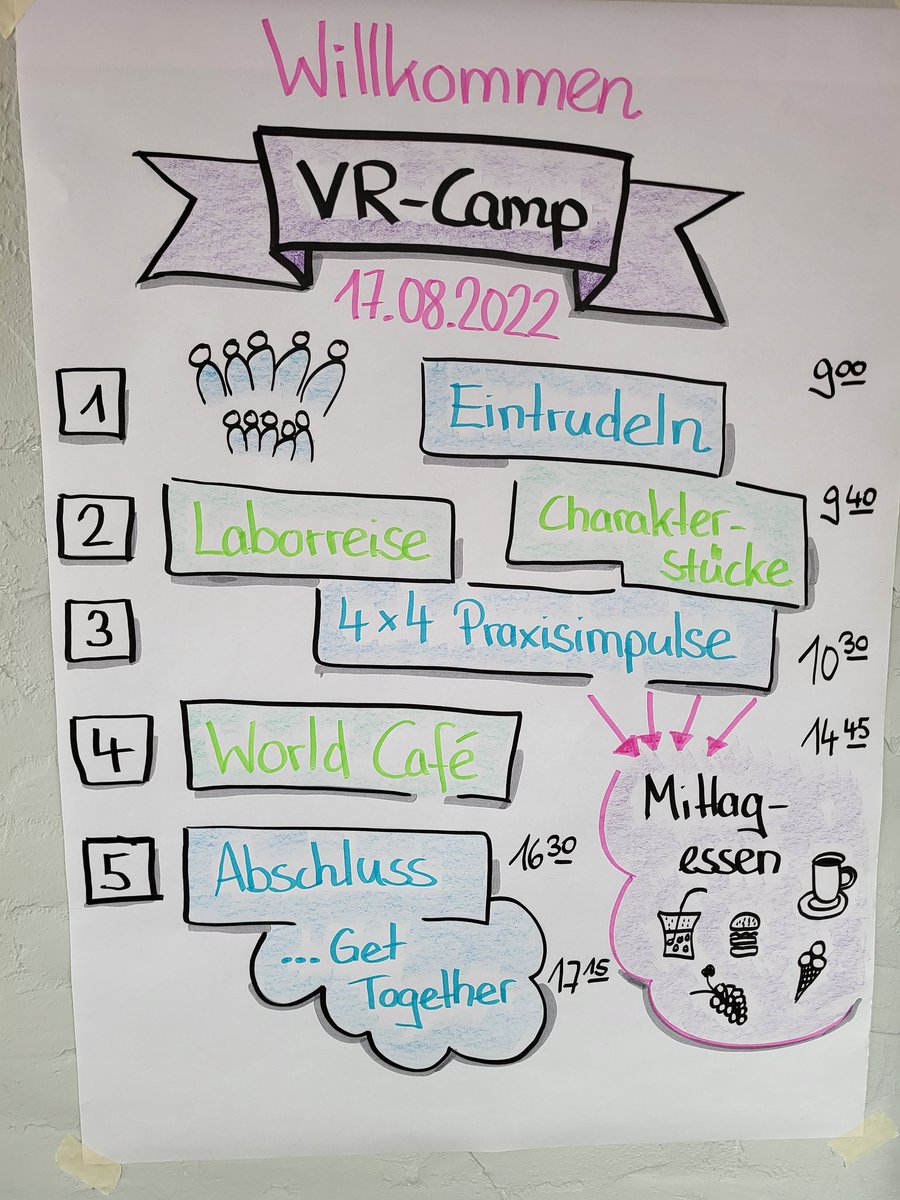 Willkommen
VR-Camp
17.08.2022
1
Eintrudeln
9 00
2
Laborreise
Charakter-
stücke
9 40
3
4x4 Praxisimpulse
10 30
4
World Café
14 45
Mittag-
essen
5
Abschluss
16 30
...Get
Together
17 15